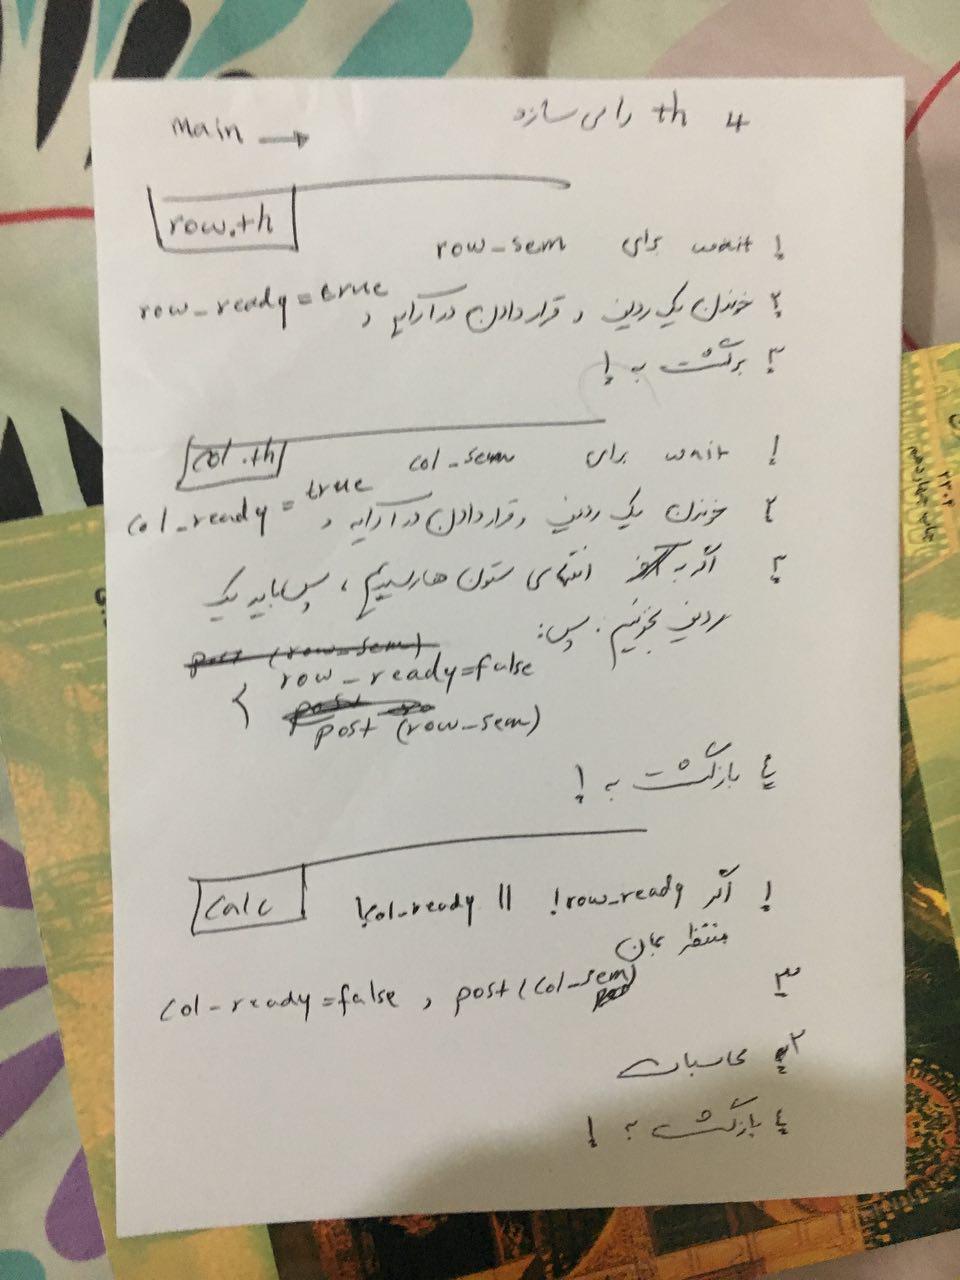 Main → 4 th را می سازد
row.th
1 wait برای row_sem
2 خوندن یک ردیف و قرار دادن در آرایه و row_ready = true
3 برگشت به 1
col.th
1 wait برای col_sem
2 خوندن یک ردیف و قرار دادن در آرایه و col_ready = true
3 اگر به انتهای ستون ها رسیدیم ، پس باید یک
ردیف بخونیم . پس:
post (row_sem)
{ row_ready=false
post (row_sem)
4 بازگشت به 1
Calc
1 اگر !row_ready || !col_ready
منتظر بمان
3 col_ready=false , post (col_sem)
2 محاسبات
4 بازگشت به 1